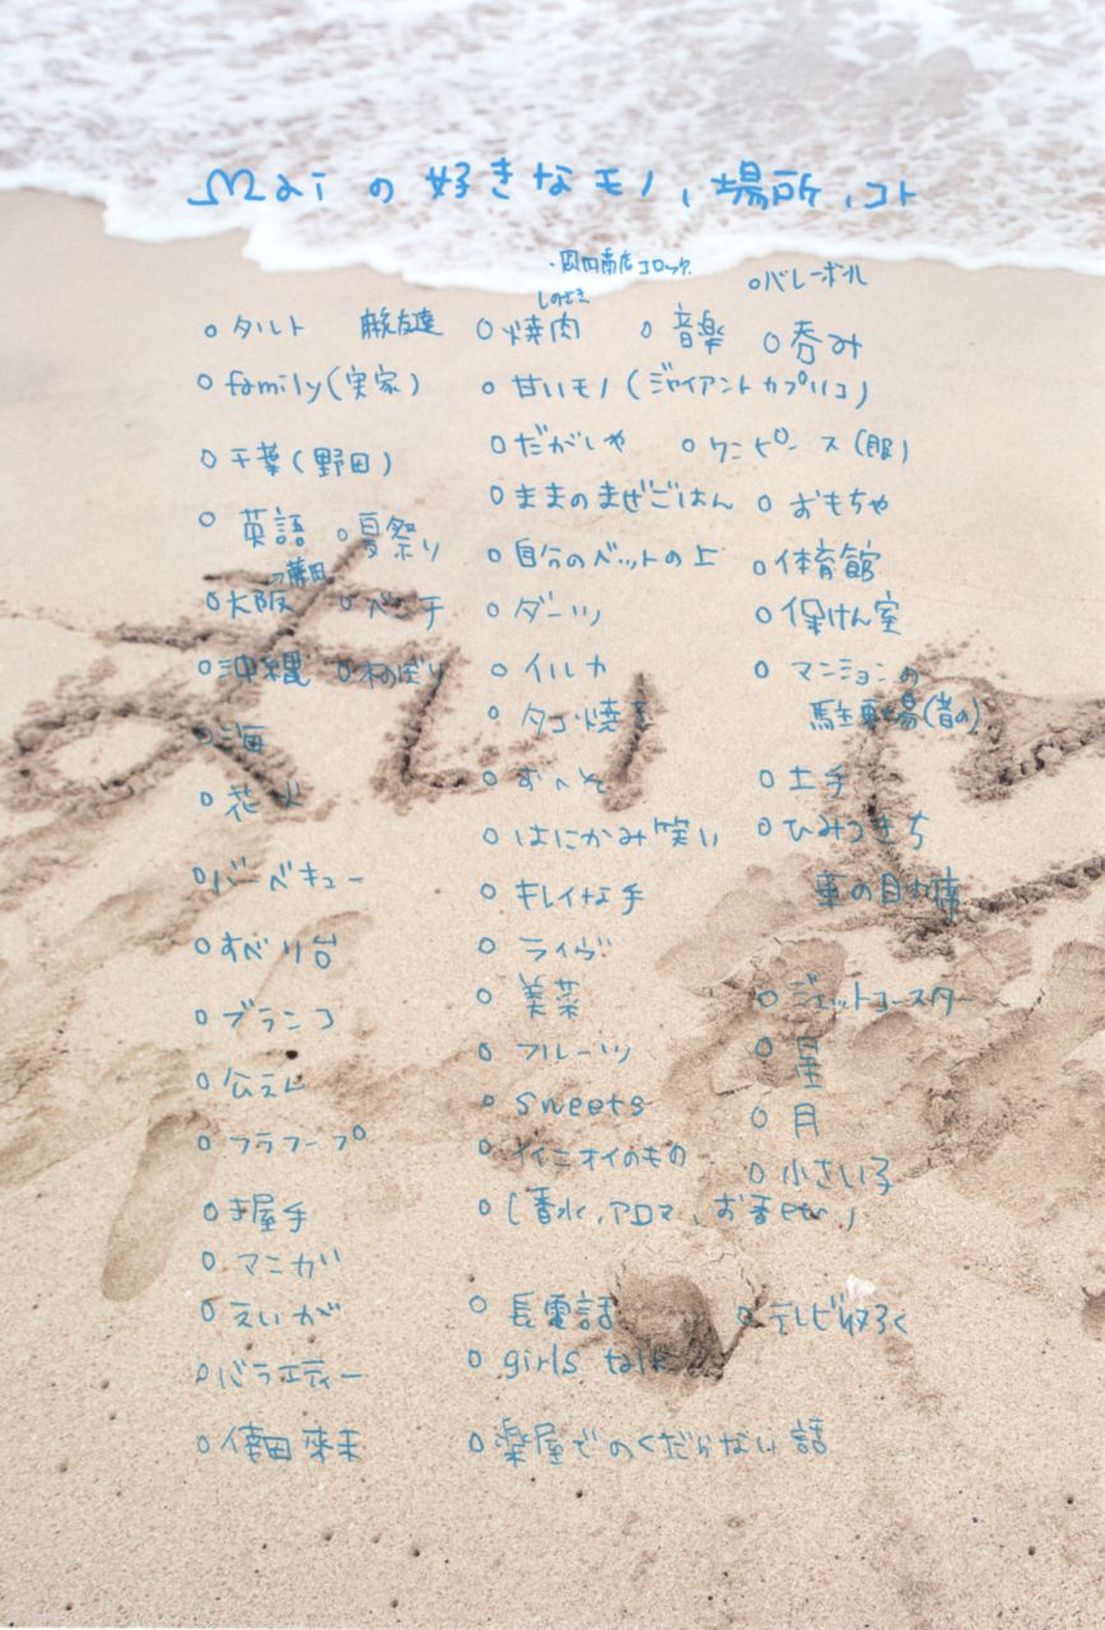 Maiの好きなモノ、場所、コト
・岡田商店コロッケ
○バレーボール
○タルト 親友達 ○焼肉 ○音楽 ○呑み
○family(実家) ○甘いモノ(ジャイアントカプリコ)
○だがしや ○ワンピース(服)
○千葉(野田)
○ままのまぜごはん ○おもちゃ
○英語 ○夏祭り
○自分のベットの上 ○体育館
○大阪 ○ベンチ ○ダーツ ○保けん室
○沖縄 ○木のぼり ○イルカ ○マンションの
駐車場(昔の)
○海 ○タコ焼き
○花火 ○おへそ ○土手
○はにかみ笑い ○ひみつきち
○バーベキュー ○キレイな手 車の目の席
○すべり台 ○ライヴ
○美菜 ○ジェットコースター
○ブランコ ○フルーツ ○星
○公えん ○sweets ○月
○フラフープ ○イイニオイのもの ○小さい子
○き屋手 ○(香水、アロマ、お香etc)
○マンガ
○えいが ○長電話 ○テレビ収ろく
○バラエティー ○girls talk
○倖田來未 ○楽屋でのくだらない話
あい